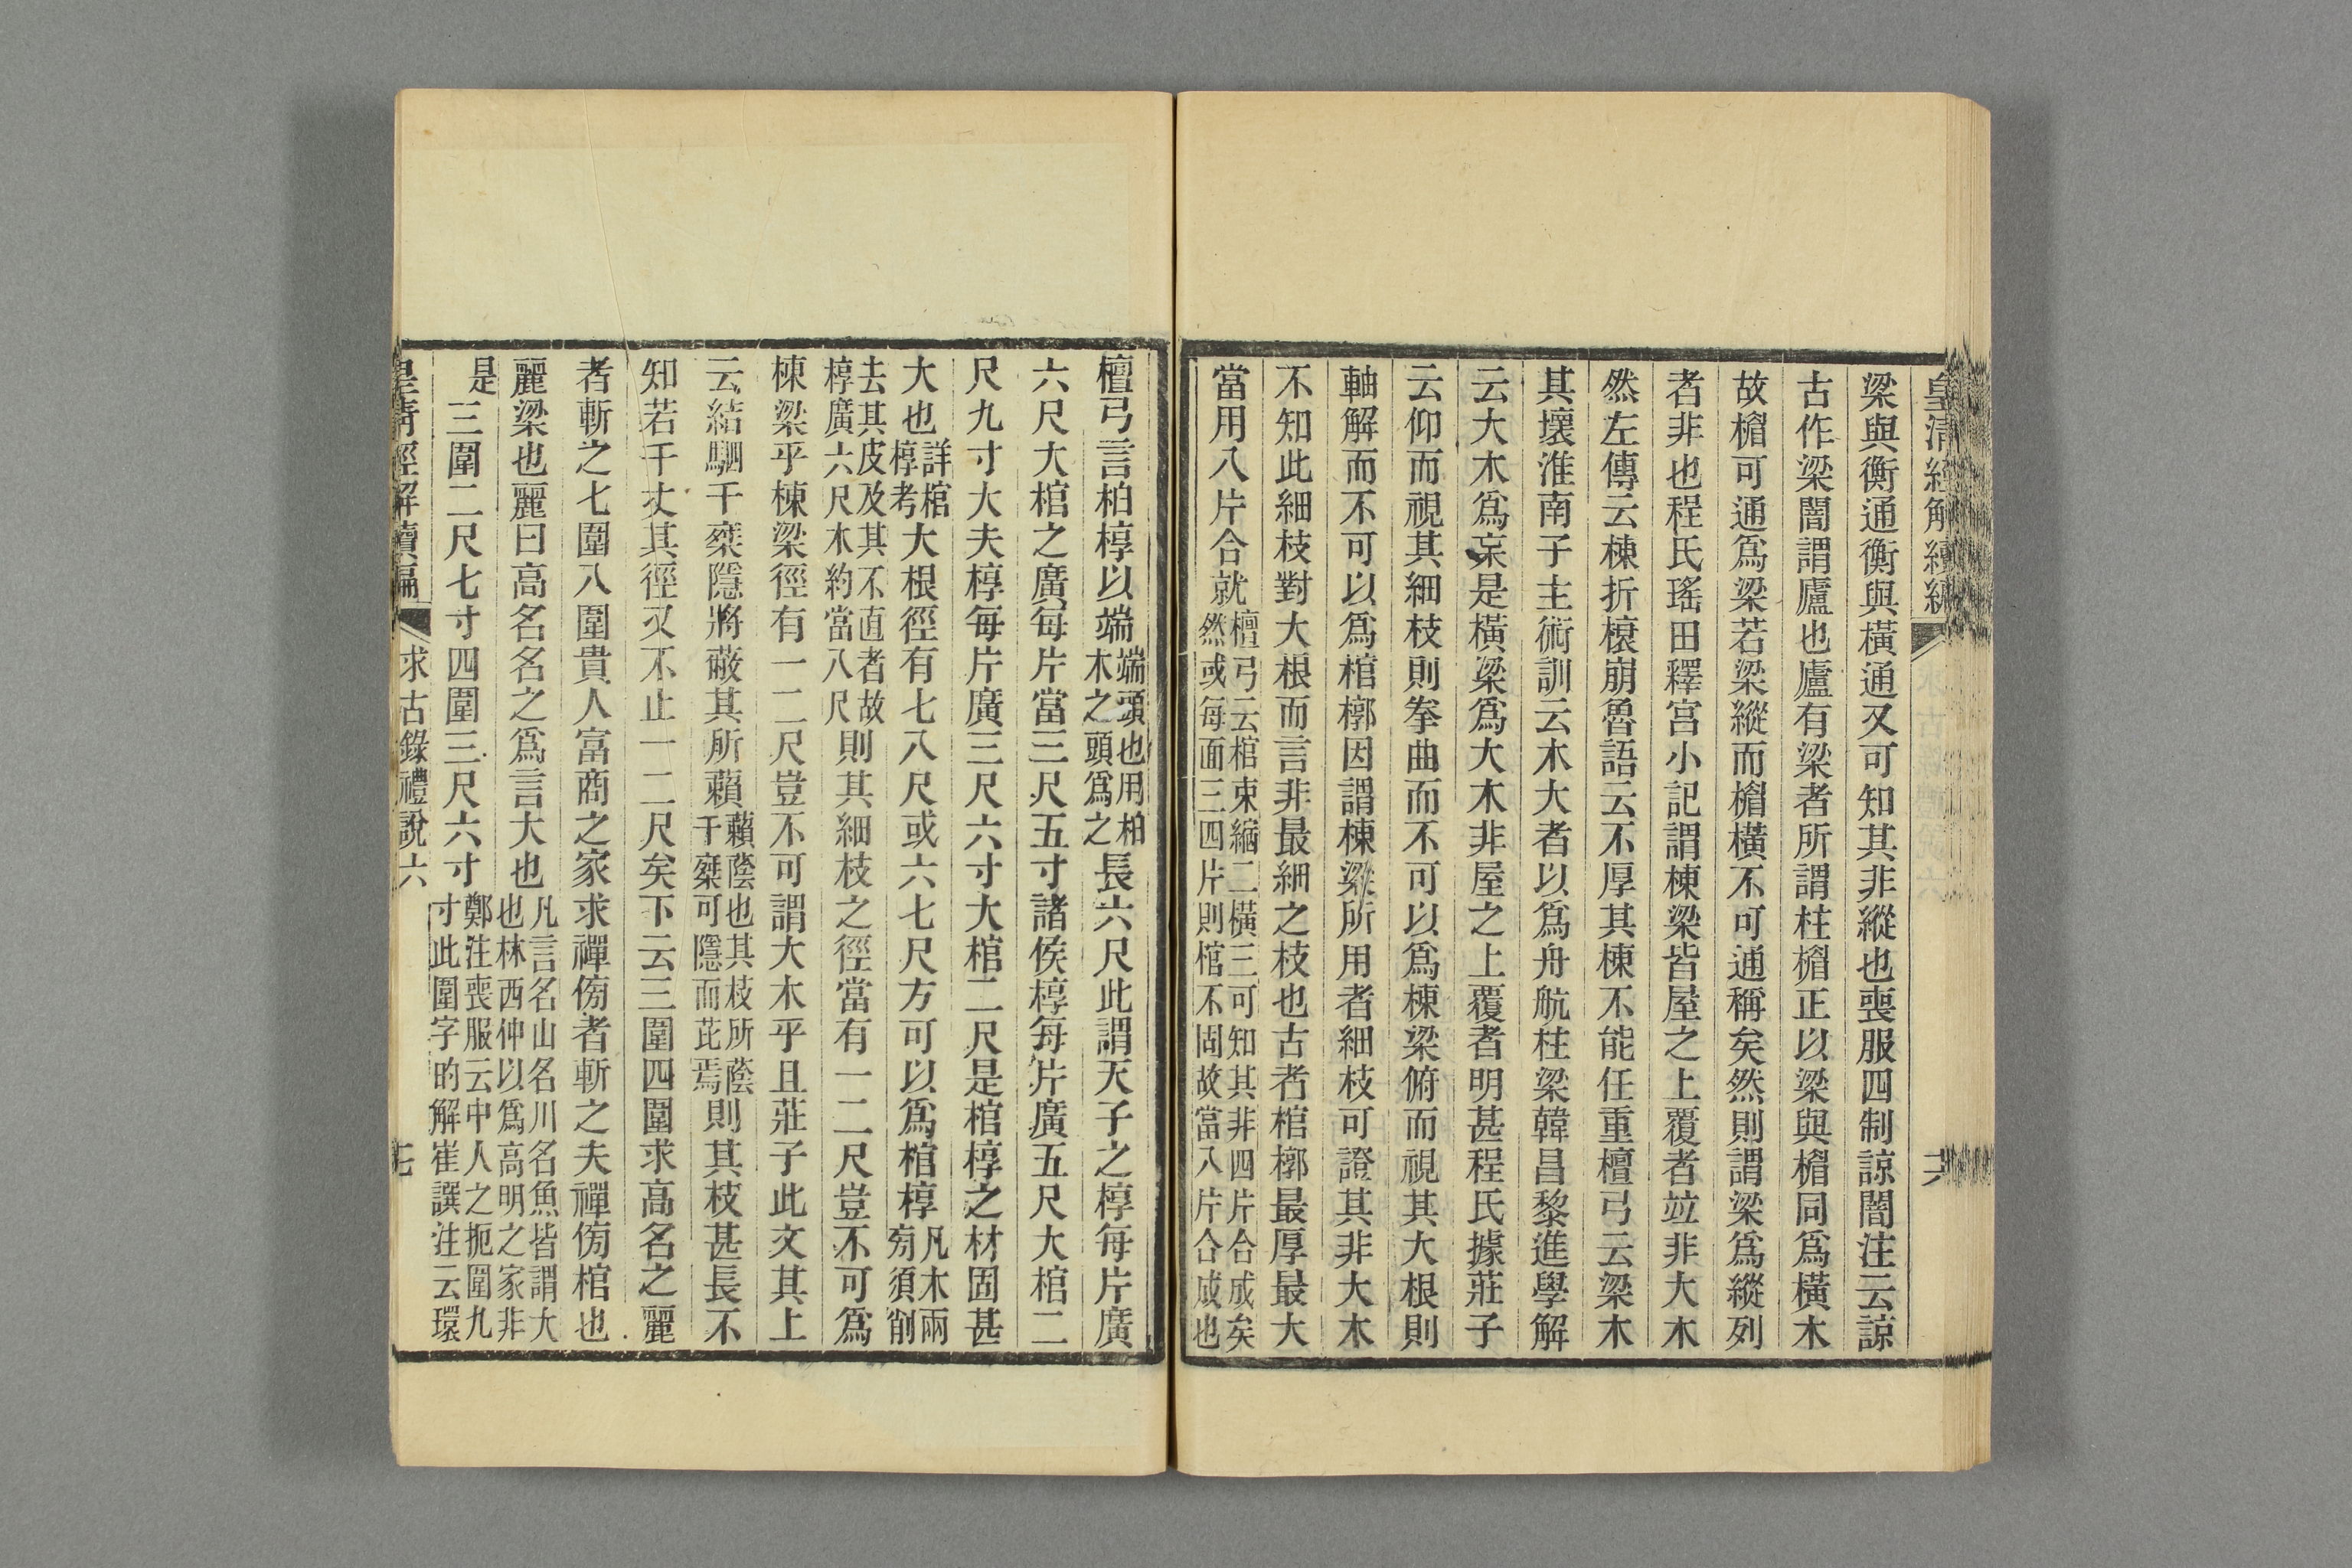 皇清經解續編
梁與衡通衡與橫通又可知其非縱也喪服四制諒闇注云諒
古作梁闇謂廬也廬有梁者所謂柱楣正以梁與楣同爲橫木
故楣可通爲梁若梁縱而楣橫不可通稱矣然則謂梁爲縱列
者非也程氏瑤田釋宮小記謂棟梁皆屋之上覆者竝非大木
然左傳云棟折榱崩魯語云不厚其棟不能任重檀弓云梁木
其壞淮南子主術訓云木大者以爲舟航柱梁韓昌黎進學解
云大木爲杗是橫梁爲大木非屋之上覆者明甚程氏據莊子
云仰而視其細枝則拳曲而不可以爲棟梁俯而視其大根則
軸解而不可以爲棺槨因謂棟梁所用者細枝可證其非大木
不知此細枝對大根而言非最細之枝也古者棺槨最厚最大
當用八片合就檀弓云棺束縮二橫三可知其非四片合成矣
然或每面三四片則棺不固故當八片合成也
檀弓言柏椁以端端頭也用柏
木之頭爲之長六尺此謂天子之椁每片廣
六尺大棺之廣每片當三尺五寸諸侯椁每片廣五尺大棺二
尺九寸大夫椁每片廣三尺六寸大棺二尺是棺椁之材固甚
大也詳棺
椁考大根徑有七八尺或六七尺方可以爲棺椁凡木兩
旁須削
去其皮及其不直者故
椁廣六尺木約當八尺則其細枝之徑當有一二尺豈不可爲
棟梁乎棟梁徑有一二尺豈不可謂大木乎且莊子此文其上
云結駟千椉隱將蔽其所藾藾蔭也其枝所蔭
千椉可隱而芘焉則其枝甚長不
知若干丈其徑又不止一二尺矣下云三圍四圍求高名之麗
者斬之七圍八圍貴人富商之家求禪傍者斬之夫禪傍棺也
麗梁也麗曰高名名之爲言大也凡言名山名川名魚皆謂大
也林西仲以爲高明之家非
是三圍二尺七寸四圍三尺六寸鄭注喪服云中人之扼圍九
寸此圍字的解崔譔注云環
皇清經解續編 求古錄禮說六